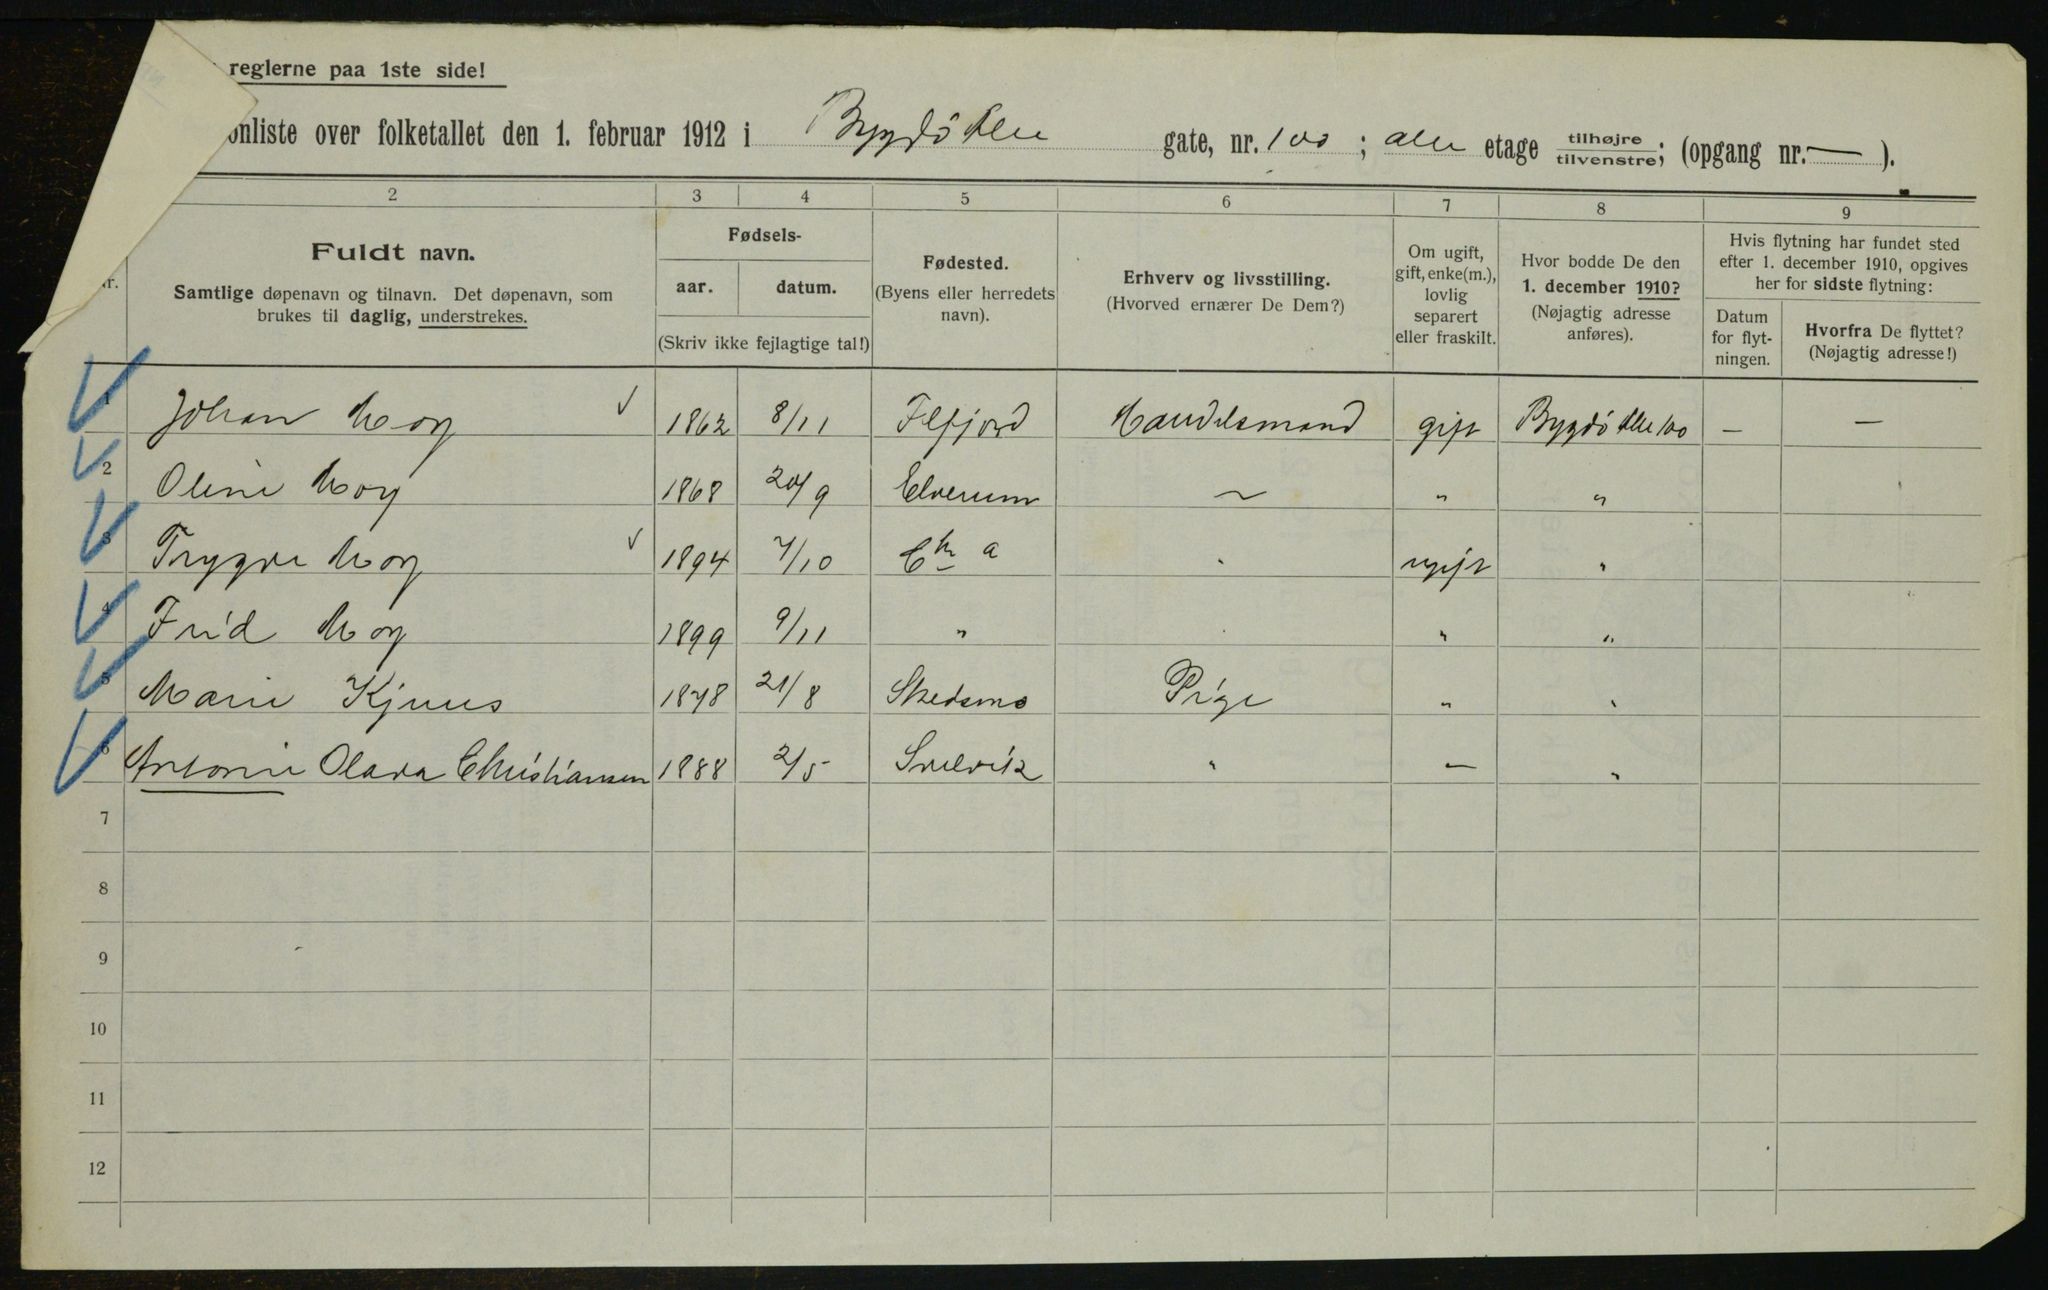 reglerne paa 1ste side!
onliste over folketallet den 1. februar 1912 i Bygdö Alle gate, nr. 100 ; alle etage tilhøjre tilvenstre; (opgang nr. — ).
2 3 4 5 6 7 8 9
r.
Fuldt navn.
Samtlige døpenavn og tilnavn. Det døpenavn, som
brukes til daglig, understrekes.
Fødsels-
aar. datum.
(Skriv ikke fejlagtige tal!)
Fødested.
(Byens eller herredets
navn).
Erhverv og livsstilling.
(Hvorved ernærer De Dem?)
Om ugift,
gift, enke(m.),
lovlig
separert
eller fraskilt.
Hvor bodde De den
1. december 1910?
(Nøjagtig adresse
anføres).
Hvis flytning har fundet sted
efter 1. december 1910, opgives
her for sidste flytning:
Datum
for flyt-
ningen.
Hvorfra De flyttet?
(Nøjagtig adresse!)
1 Johan 1862 8/11 Handelsmand gift Bygdö Alle 100 — —
2 Oline 1868 20/9 Elverum ~ " "
3 Trygve 1894 7/10 Chr a " ugift "
4 Frid 1899 9/11 " " " "
5 Marie Kjuus 1878 21/8 Skedsmo Pige " "
6 Antonie Olava Christiansen 1888 2/5 Svelvik " — "
7
8
9
10
11
12